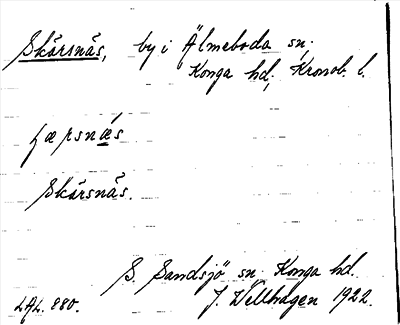 Skärsnäs, by i Älmeboda sn;
Konga hd; Kronob. l.
Skärsnäs.
S. Sandsjö sn Konga hd.
LAL. 880. J. Wellhagen 1922.